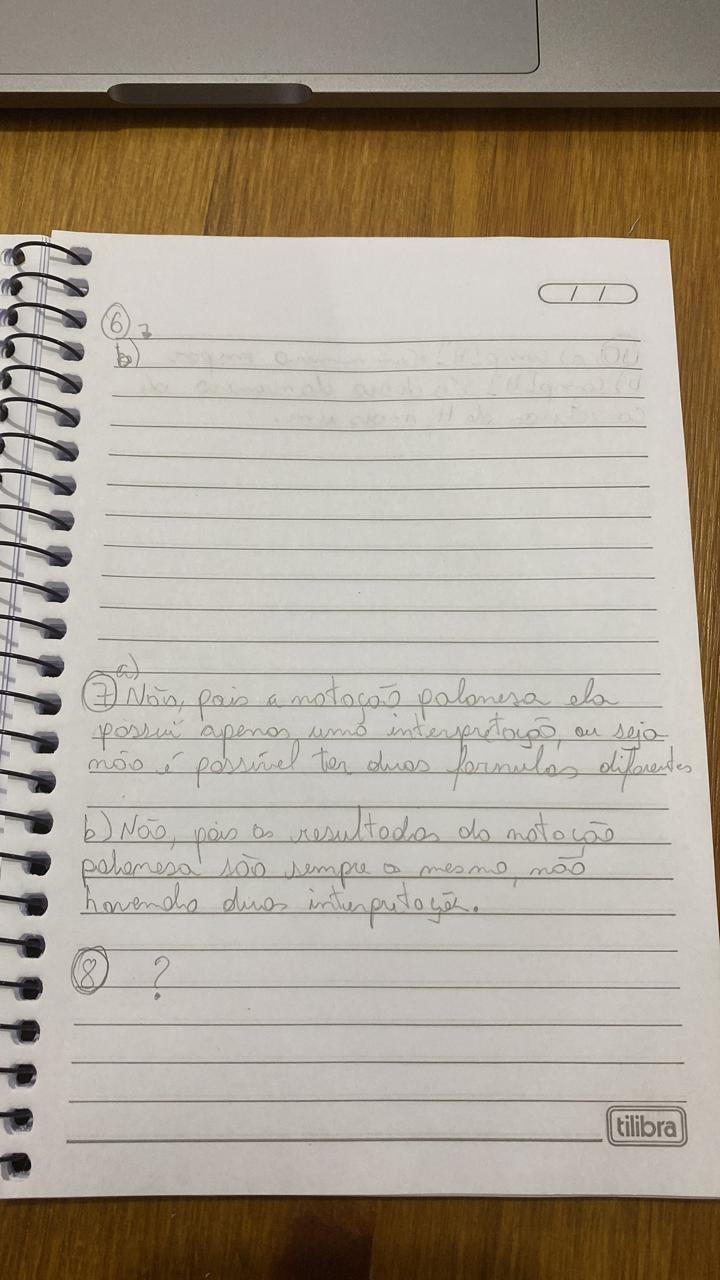 6
b)
a)
7 Não, pois a notação polonesa ela
possui apenas uma interpretação, ou seja
não é possível ter duas formulas diferentes
b) Não, pois os resultados da notação
polonesa são sempre o mesmo, não
havendo duas interpretação.
8 ?
tilibra